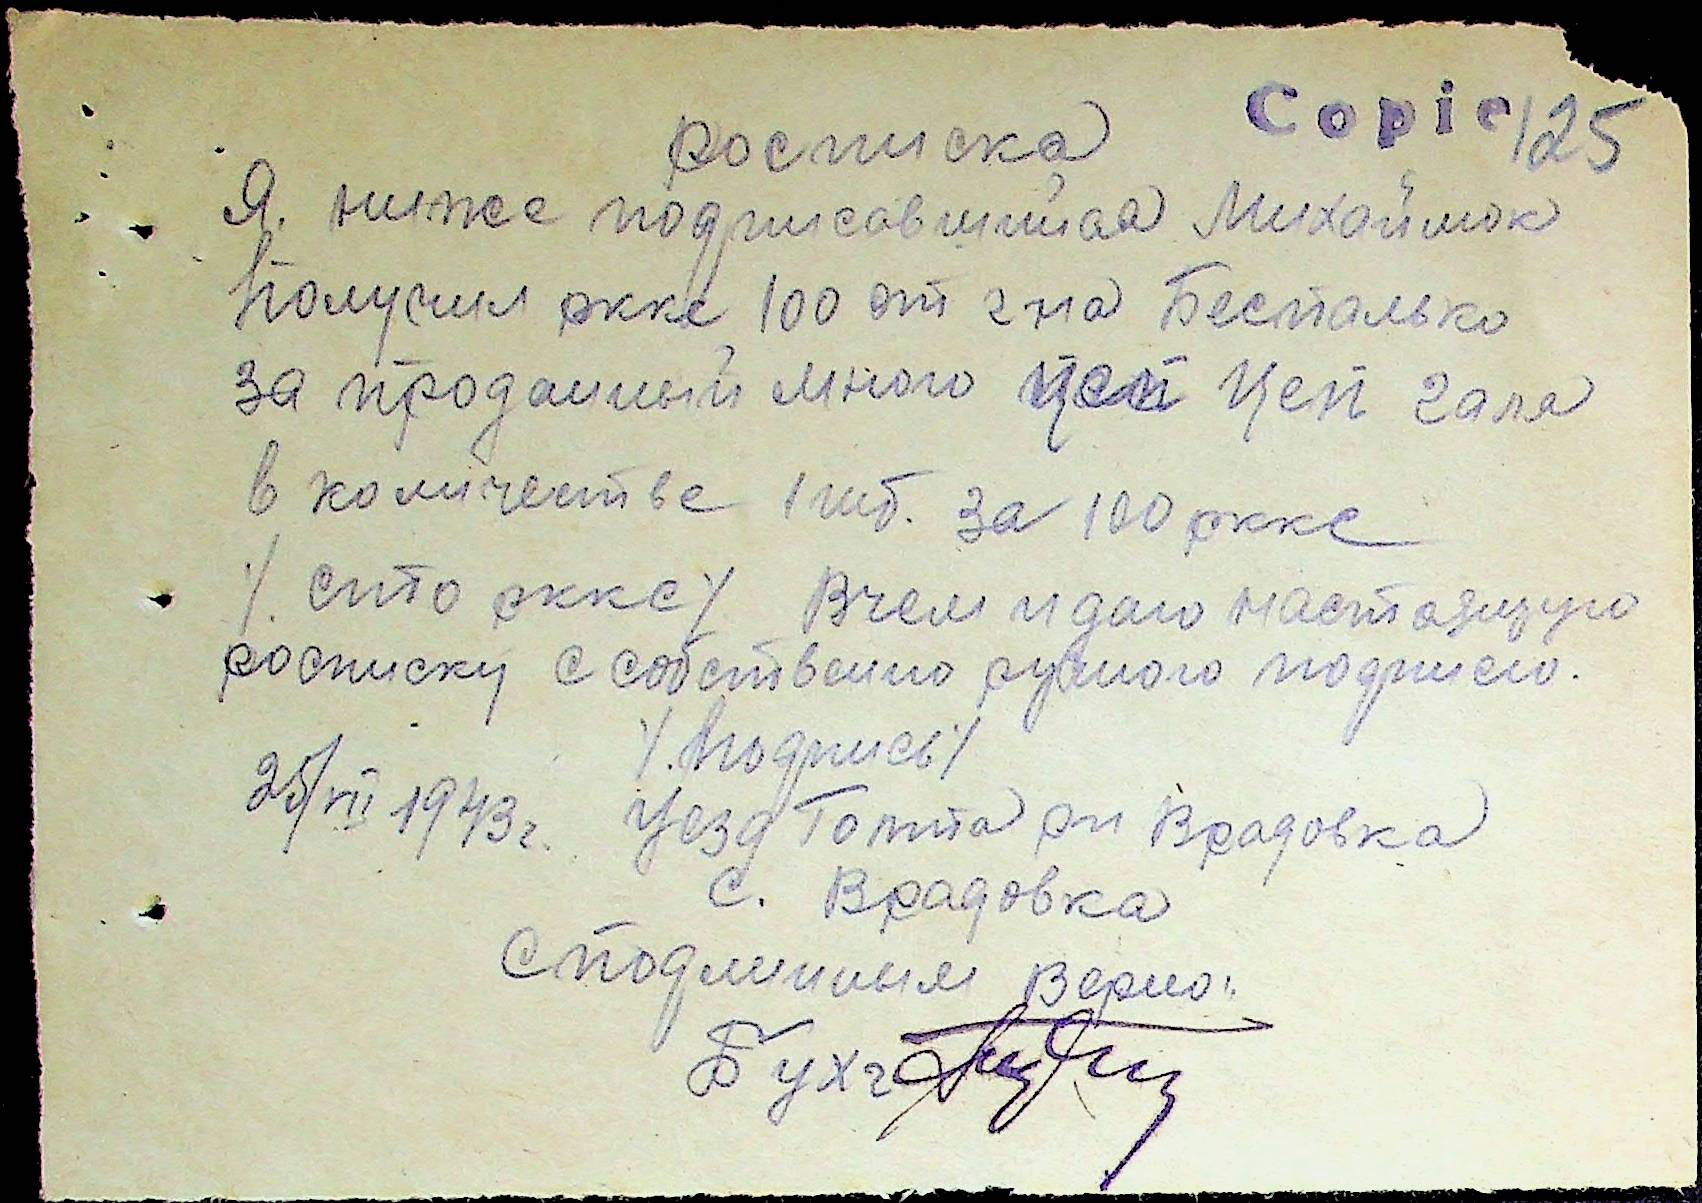 Copie 125
росписка
Я. ниже подписавшийся Михаймок
Получил рккс 100 от г на Беспалько
за проданный мною Цеп Галя
в количестве 1 шт. за 100 рккс
/. сто рккс/ В чем и даю настоящую
росписку с собственно ручною подписю.
/. Подпись/
25/VII 1943 г. Уезд Голта рн Врадовка
с. Врадовка
С подлинным Верно:
Бухг